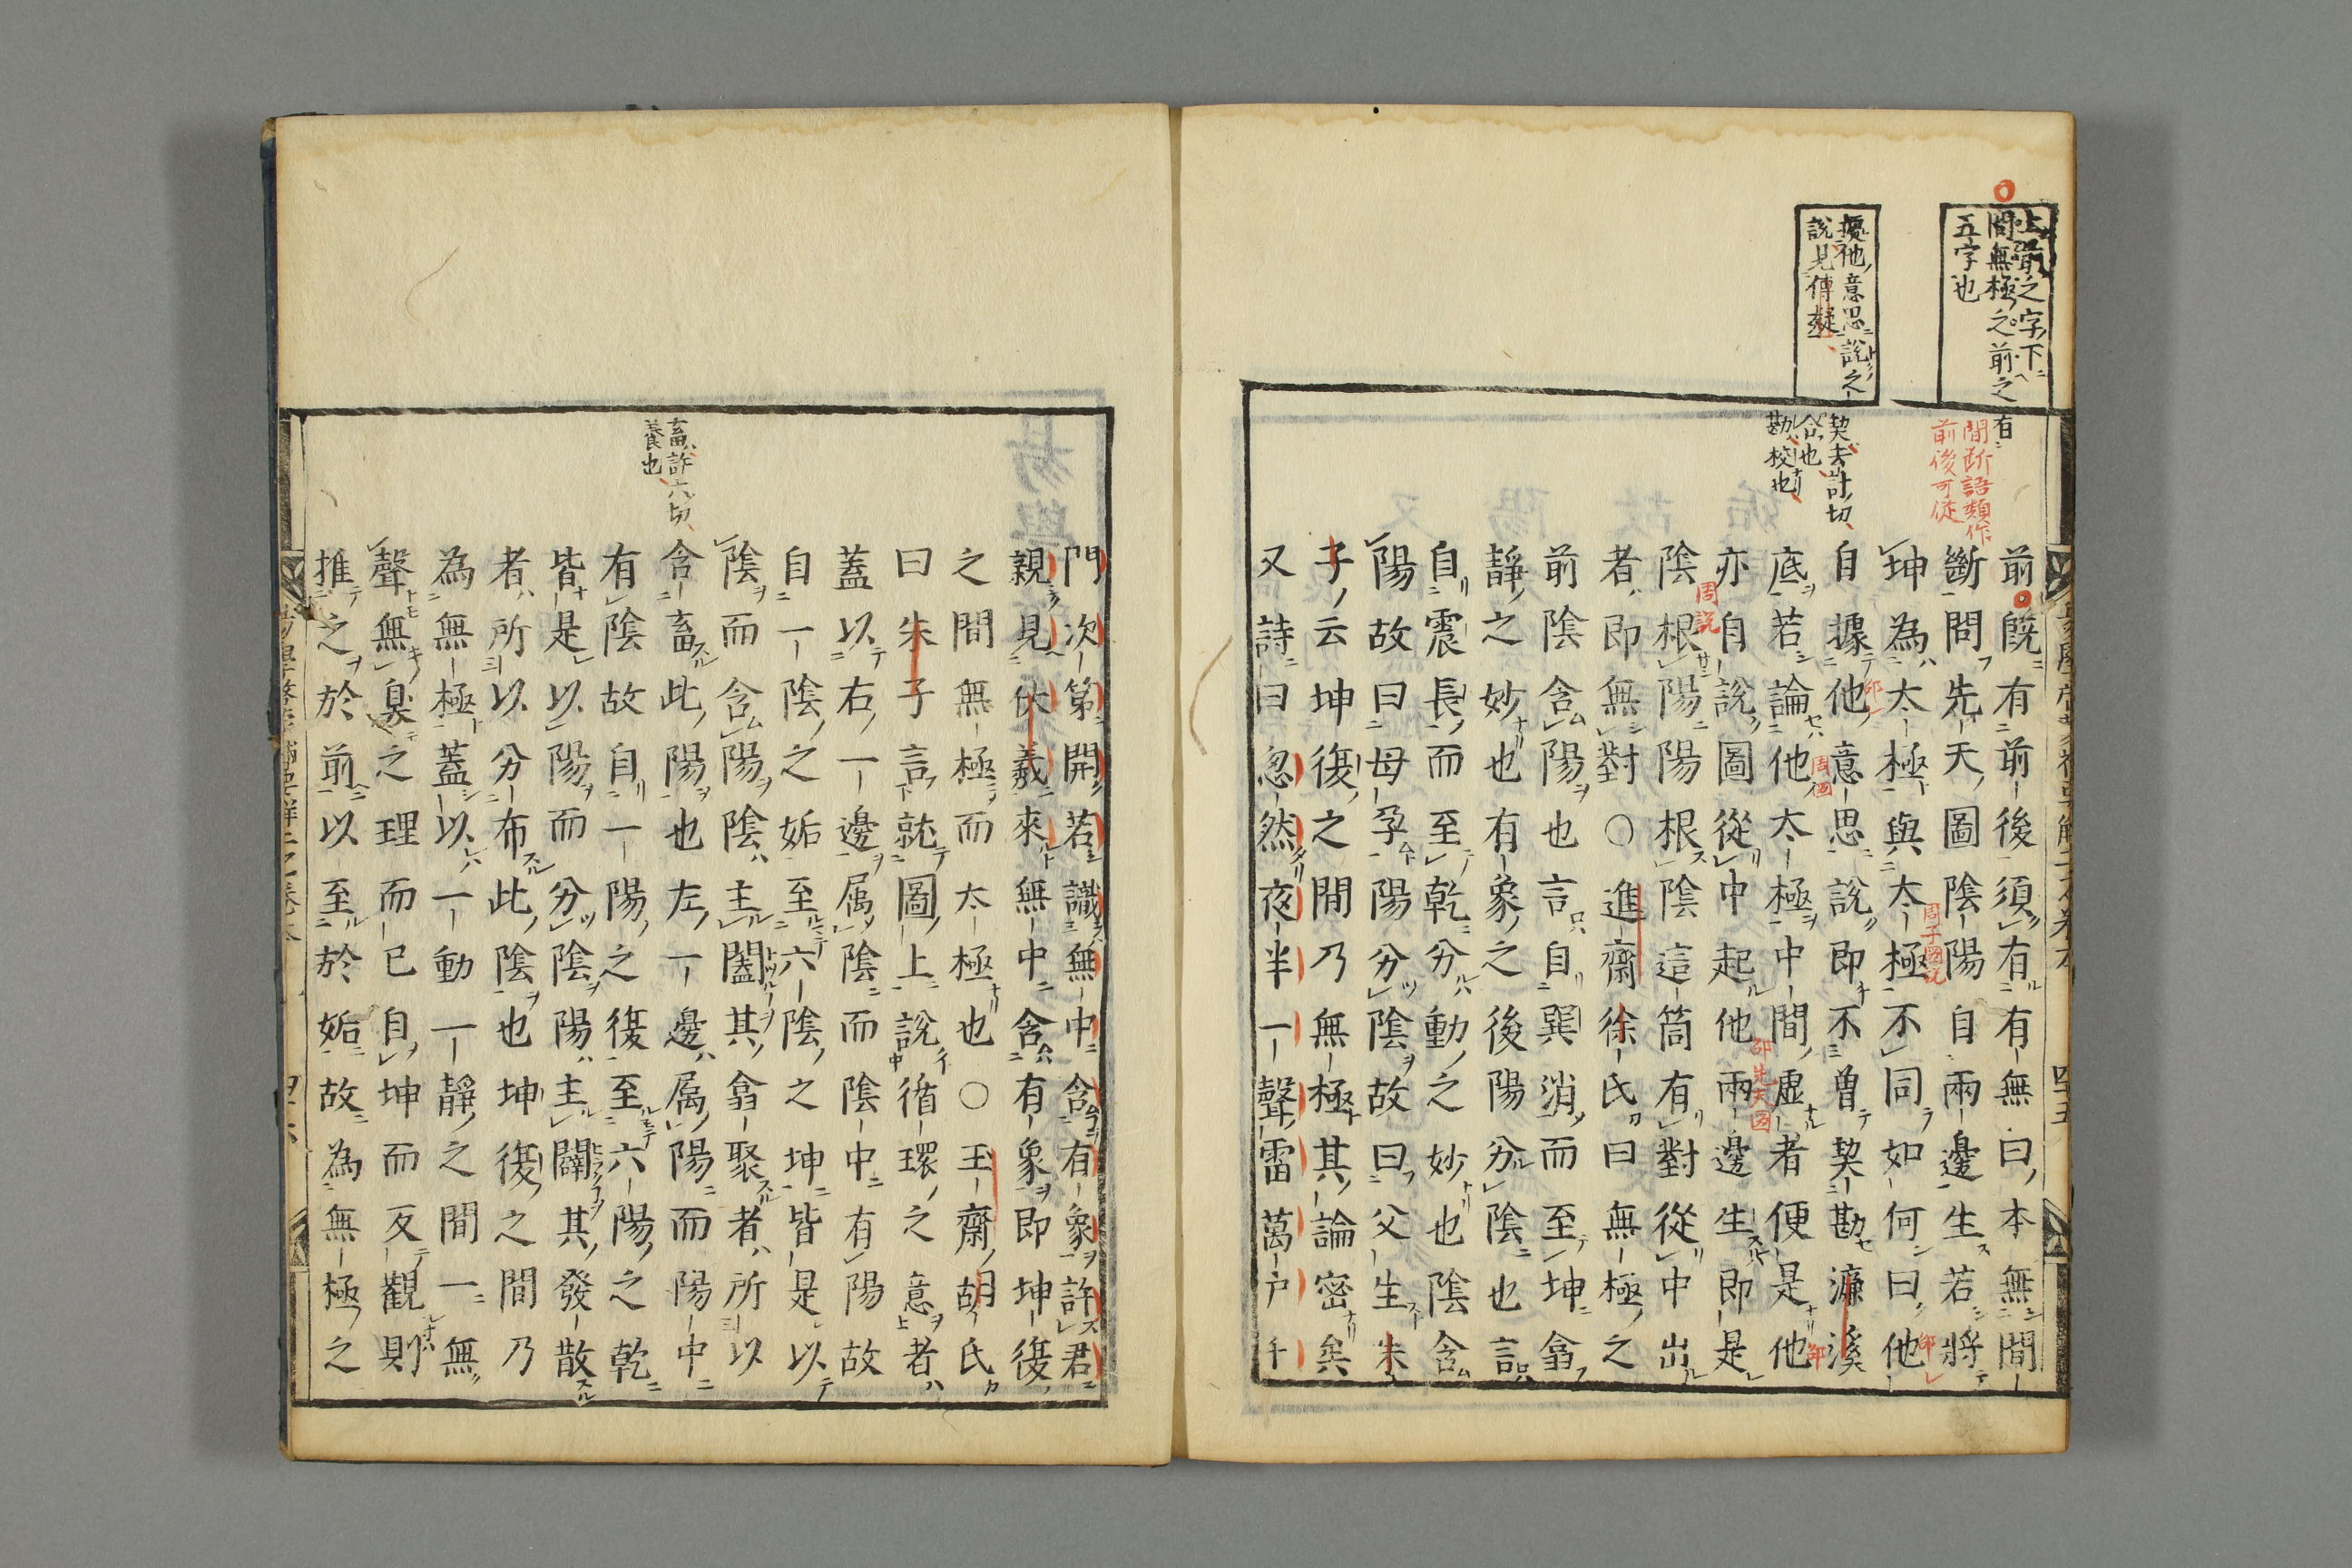 上前之字下
間無極之前之
五字也
據他意思說之
說見傳疑
有
間斷語類作
前後可從
契去計切
合也
勘校也
前既有前後須有有無曰本無間
斷問先天圖陰陽自兩邊生若將
坤為太極與太極不同如何曰他
自據他意思說即不曽契勘濂溪
底若論他太極中間虛者便是他
亦自說圖從中起他兩邊生即是
陰根陽陽根陰這箇有對從中出
者即無對○進齋徐氏曰無極之
前陰含陽也言自巽消而至坤翕
靜之妙也有象之後陽分陰也言
自震長而至乾分動之妙也陰含
陽故曰母孕陽分陰故曰父生朱
子云坤復之間乃無極其論密矣
又詩曰忽然夜半一聲雷萬户千
周子圖說
邵
邵
周圖
邵
邵先天圖
周說
四十五
畜許六切
養也
門次第開若識無中含有象許君
親見伏羲來無中含有象即坤復
之間無極而太極也○玉齋胡氏
曰朱子言就圖上說循環之意者
蓋以右一邊属陰而陰中有陽故
自一陰之姤至六陰之坤皆是以
陰而含陽陰主闔其翕聚者所以
含畜此陽也左一邊属陽而陽中
有陰故自一陽之復至六陽之乾
皆是以陽而分陰陽主闢其發散
者所以分布此陰也坤復之間乃
為無極蓋以一動一靜之間一無
聲無臭之理而已自坤而反觀則
推之於前以至於姤故為無極之
四十六